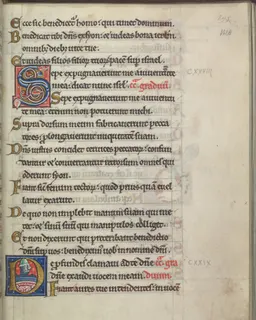 Ecce sic benedicetur homo: qui timet dominum.
Benedicat tibi dñs ex syon: et uideas bona ierlm̄
omnib; dieb; uite tue.
Et uideas filios filiorum tuorum: pacem sup isrl.
Sepe expugnauerunt me a iuuentute
mea: dicat nunc isrl. cc̄ graduū
Sepe expugnauerunt me a iuuen
tute mea: etenim non potuerunt michi.
Supra dorsum meum fabricauerunt pecca
tores: prolongauerunt iniquitatem suam.
Dn̄s iustus concidet ceruices peccatorum: confun
dantur et conuertantur retrorsum omnes qui
oderunt syon.
Fiant sicut fenum tectorum: quod prius quam euel
latur exaruit.
De quo non impleuit manum suam qui me
tet: et sinum suum qui manipulos colliget.
Et non dixerunt qui preteribant benedictio
dn̄i sup uos: benediximus uobis in nomine dn̄i.
De profundis clamaui ad te dn̄e cc̄ gra
dn̄e exaudi uocem meam. duum
Fiant aures tue intendentes: in uocem